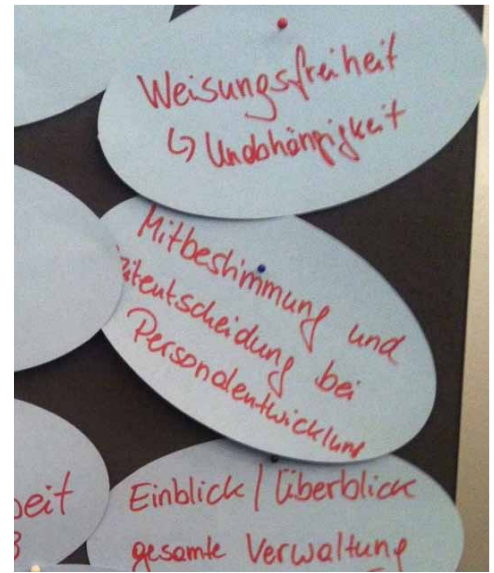 Weisungsfreiheit
↳ Unabhängigkeit
Mitbestimmung und
Mitentscheidung bei
Personalentwicklung
Einblick / Überblick
gesamte Verwaltung